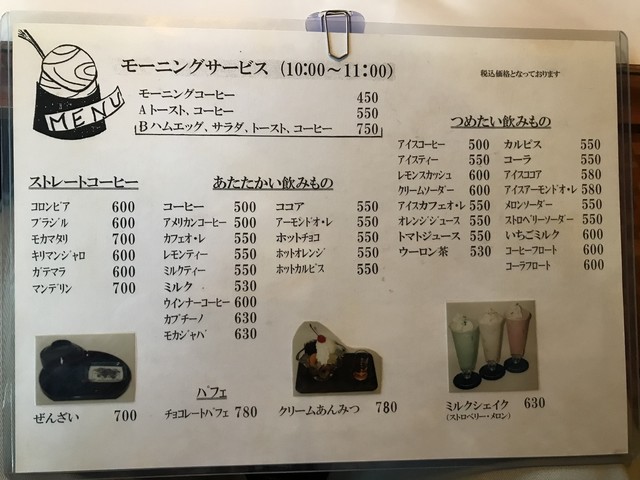 MENU
モーニングサービス (10:00～11:00)
税込価格となっております
モーニングコーヒー 450
Aトースト、コーヒー 550
Bハムエッグ、サラダ、トースト、コーヒー 750
ストレートコーヒー
コロンビア 600
ブラジル 600
モカマタリ 700
キリマンジャロ 600
ガテマラ 600
マンデリン 700
あたたかい飲みもの
コーヒー 500
アメリカンコーヒー 500
カフェオ・レ 550
レモンティー 550
ミルクティー 550
ミルク 530
ウインナーコーヒー 600
カプチーノ 630
モカジャバ 630
ココア 550
アーモンドオ・レ 550
ホットチョコ 550
ホットオレンジ 550
ホットカルピス 550
つめたい飲みもの
アイスコーヒー 500
アイスティー 550
レモンスカッシュ 600
クリームソーダー 600
アイスカフェオ・レ 550
オレンジジュース 550
トマトジュース 550
ウーロン茶 530
カルピス 550
コーラ 550
アイスココア 580
アイスアーモンドオ・レ 580
メロンソーダー 550
ストロベリーソーダー 550
いちごミルク 600
コーヒーフロート 600
コーラフロート 600
ぜんざい 700
パフェ
チョコレートパフェ 780
クリームあんみつ 780
ミルクシェイク 630
(ストロベリー・メロン)